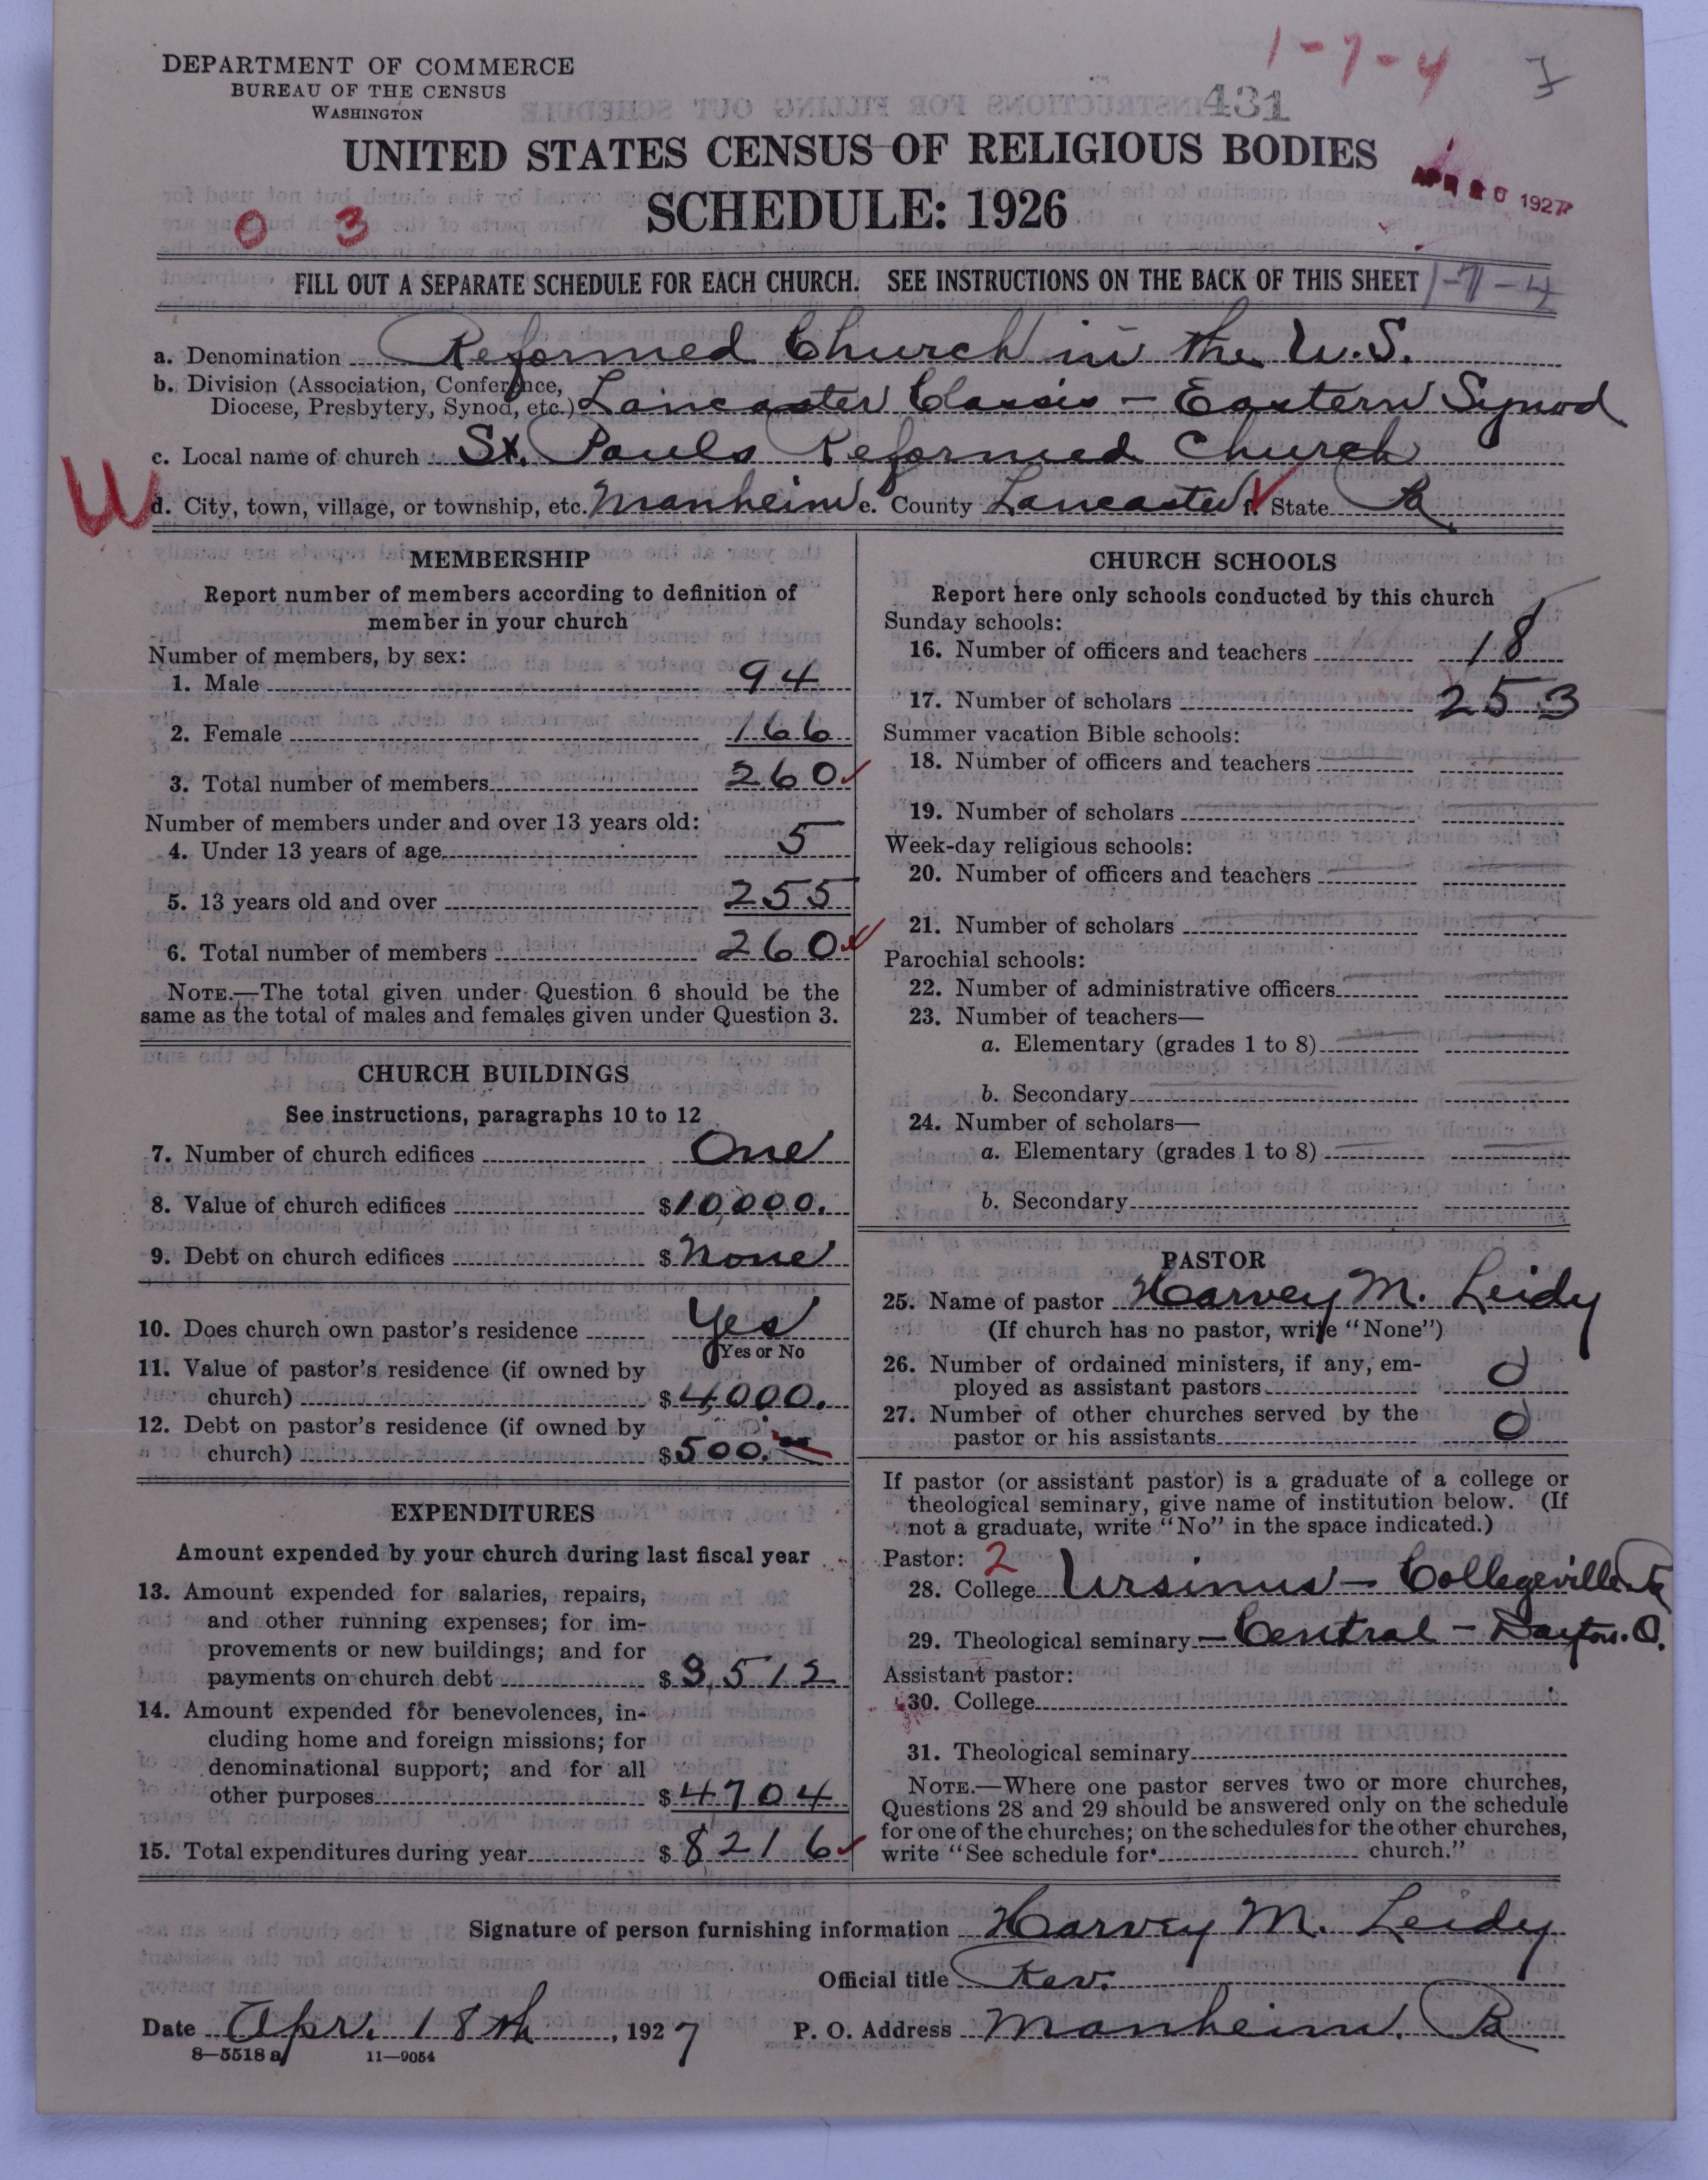 1-7-4
7
DEPARTMENT OF COMMERCE
BUREAU OF THE CENSUS
WASHINGTON
431
UNITED STATES CENSUS OF RELIGIOUS BODIES
SCHEDULE: 1926
APR 20 1927
0 3
FILL OUT A SEPARATE SCHEDULE FOR EACH CHURCH. SEE INSTRUCTIONS ON THE BACK OF THIS SHEET 1-7-4
a. Denomination Reformed Church in the U.S.
b. Division (Association, Conference,
Diocese, Presbytery, Synod, etc.) Lancaster Classis - Eastern Synod
c. Local name of church St. Pauls Reformed Church
W
d. City, town, village, or township, etc. Manheim e. County Lancaster f. State Pa
MEMBERSHIP
Report number of members according to definition of
member in your church
Number of members, by sex:
1. Male 94
2. Female 166
3. Total number of members 260
Number of members under and over 13 years old:
4. Under 13 years of age 5
5. 13 years old and over 255
6. Total number of members 260
NOTE.—The total given under Question 6 should be the
same as the total of males and females given under Question 3.
CHURCH BUILDINGS
See instructions, paragraphs 10 to 12
7. Number of church edifices One
8. Value of church edifices $10,000.
9. Debt on church edifices $ None
10. Does church own pastor's residence Yes
Yes or No
11. Value of pastor's residence (if owned by
church) $4,000.
12. Debt on pastor's residence (if owned by
church) $500.00
EXPENDITURES
Amount expended by your church during last fiscal year
13. Amount expended for salaries, repairs,
and other running expenses; for im-
provements or new buildings; and for
payments on church debt $3,512
14. Amount expended for benevolences, in-
cluding home and foreign missions; for
denominational support; and for all
other purposes $4704
15. Total expenditures during year $8216
CHURCH SCHOOLS
Report here only schools conducted by this church
Sunday schools:
16. Number of officers and teachers 18
17. Number of scholars 253
Summer vacation Bible schools:
18. Number of officers and teachers
19. Number of scholars
Week-day religious schools:
20. Number of officers and teachers
21. Number of scholars
Parochial schools:
22. Number of administrative officers
23. Number of teachers—
a. Elementary (grades 1 to 8)
b. Secondary
24. Number of scholars—
a. Elementary (grades 1 to 8)
b. Secondary
PASTOR
25. Name of pastor Harvey M. Leidy
(If church has no pastor, write "None")
26. Number of ordained ministers, if any, em-
ployed as assistant pastors 0
27. Number of other churches served by the
pastor or his assistants 0
If pastor (or assistant pastor) is a graduate of a college or
theological seminary, give name of institution below. (If
not a graduate, write "No" in the space indicated.)
Pastor: 2
28. College Ursinus - Collegeville Pa
29. Theological seminary - Central - Dayton. O.
Assistant pastor:
30. College
31. Theological seminary
NOTE.—Where one pastor serves two or more churches,
Questions 28 and 29 should be answered only on the schedule
for one of the churches; on the schedules for the other churches,
write "See schedule for church."
Signature of person furnishing information Harvey M. Leidy
Official title Rev.
Date Apr. 18th, 1927 P. O. Address Manheim. Pa
8—5518 a 11—9054